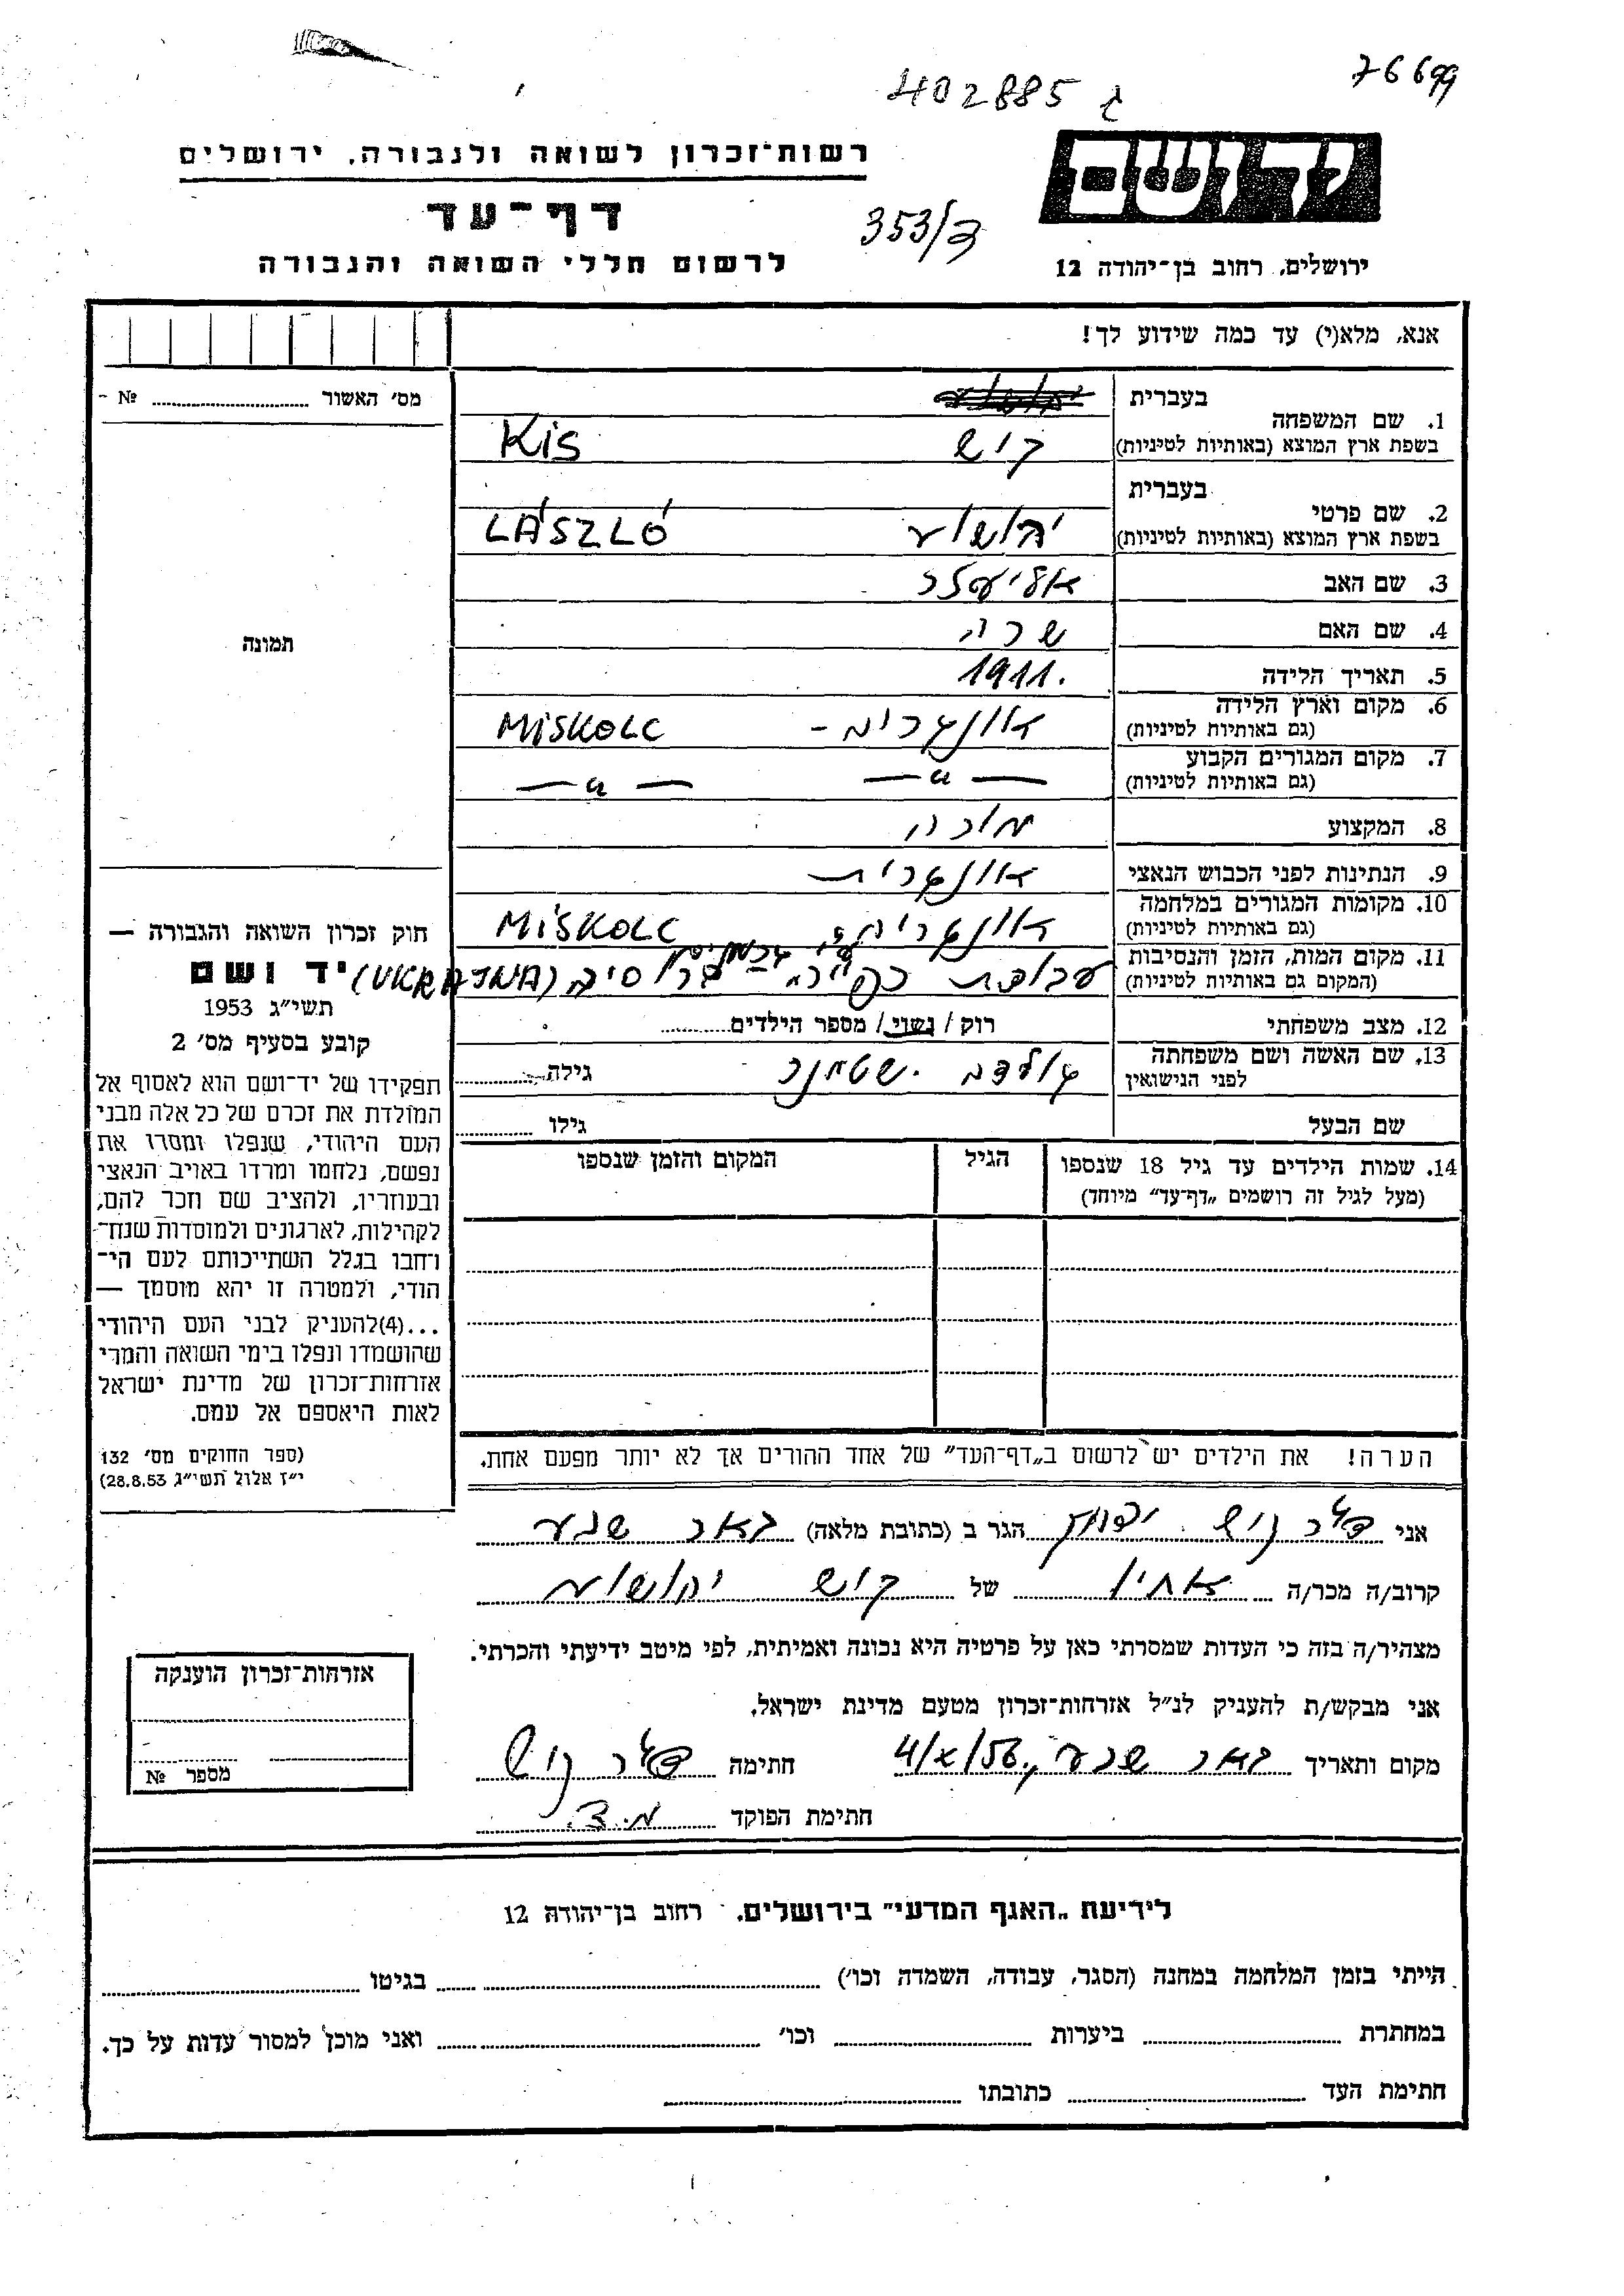 76699
402885 ג
יד ושם
רשות־זכרון לשואה ולגבורה, ירושלים
דף־עד
353/ק
לרשום חללי השואה והגבורה
ירושלים, רחוב בן־יהודה 12
אנא, מלא(י) עד כמה שידוע לך!
מס׳ האשור № -
1. שם המשפחה בעברית
בשפת ארץ המוצא (באותיות לטיניות) קיש KiS
2. שם פרטי בעברית
בשפת ארץ המוצא (באותיות לטיניות) יהושע LÁSZLÓ
3. שם האב אליעזר
4. שם האם שרה
5. תאריך הלידה 1911.
6. מקום וארץ הלידה
(גם באותיות לטיניות) אונגריה - MiSKOLC
7. מקום המגורים הקבוע
(גם באותיות לטיניות) — " — — " —
8. המקצוע מורה
9. הנתינות לפני הכבוש הנאצי אונגרית
10. מקומות המגורים במלחמה
(גם באותיות לטיניות) אונגריה MiSKOLC
11. מקום המות, הזמן והנסיבות
(המקום גם באותיות לטיניות) עבודת כפיה (UKRAJNA)
12. מצב משפחתי רוק / נשוי / מספר הילדים
13. שם האשה ושם משפחתה
לפני הנישואין גולדה גילה
שם הבעל גילו
14. שמות הילדים עד גיל 18 שנספו
(מעל לגיל זה רושמים „דף־עד” מיוחד)
הגיל
המקום והזמן שנספו
הערה! את הילדים יש לרשום ב„דף־העד” של אחד ההורים אך לא יותר מפעם אחת.
תמונה
חוק זכרון השואה והגבורה —
יד ושם
תשי״ג 1953
קובע בסעיף מס׳ 2
תפקידו של יד־ושם הוא לאסוף אל
המולדת את זכרם של כל אלה מבני
העם היהודי, שנפלו ומסרו את
נפשם, נלחמו ומרדו באויב הנאצי
ובעוזריו, ולהציב שם וזכר להם,
לקהילות, לארגונים ולמוסדות שנח־
רחבו בגלל השתייכותם לעם הי־
הודי, ולמטרה זו יהא מוסמך —
...(4)להעניק לבני העם היהודי
שהושמדו ונפלו בימי השואה והמרי
אזרחות־זכרון של מדינת ישראל
לאות היאספם אל עמם.
(ספר החוקים מס׳ 132
י״ז אלול תשי״ג 28.8.53)
אני הגר ב (כתובת מלאה) באר שבע
קרוב/ה מכר/ה אחיו של קיש יהושע
מצהיר/ה בזה כי העדות שמסרתי כאן על פרטיה היא נכונה ואמיתית, לפי מיטב ידיעתי והכרתי.
אני מבקש/ת להעניק לנ״ל אזרחות־זכרון מטעם מדינת ישראל.
מקום ותאריך באר שבע, 4/X/56 חתימה
חתימת הפוקד מ. צ.
אזרחות־זכרון הוענקה
מספר №
לידיעת „האגף המדעי” בירושלים, רחוב בן־יהודה 12
הייתי בזמן המלחמה במחנה (הסגר, עבודה, השמדה וכו׳) בגיטו
במחתרת ביערות וכו׳ ואני מוכן למסור עדות על כך.
חתימת העד כתובתו